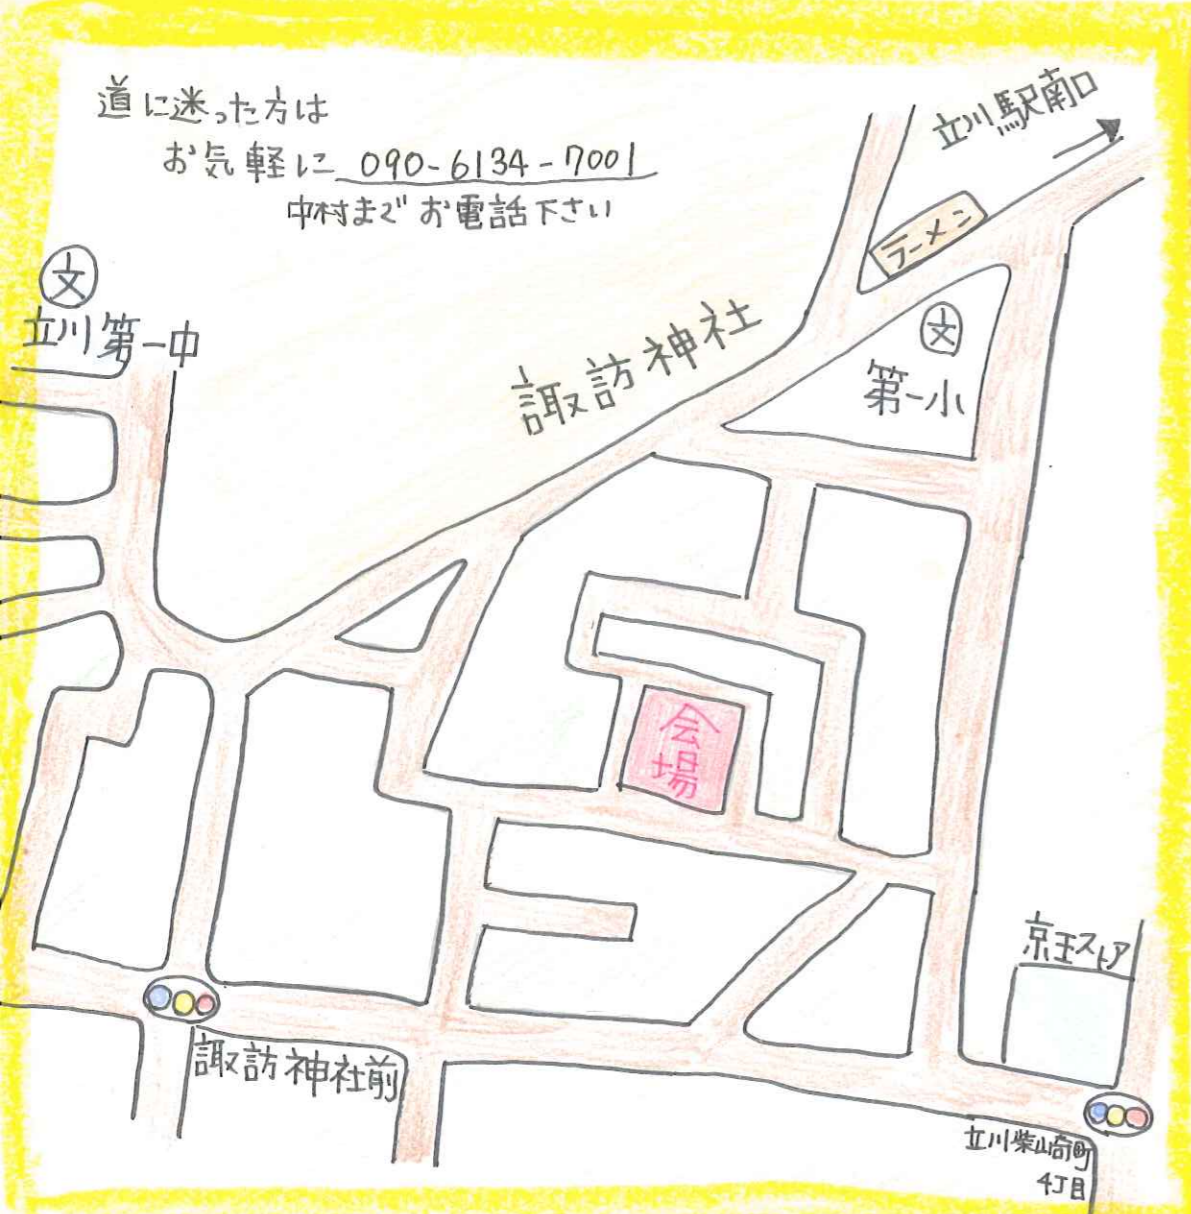 道に迷った方は
お気軽に 090-6134-7001
中村まで お電話下さい
立川駅南口
ラーメン
文
立川第一中
諏訪神社
文
第一小
会場
京王ストア
諏訪神社前
立川柴崎町
4丁目